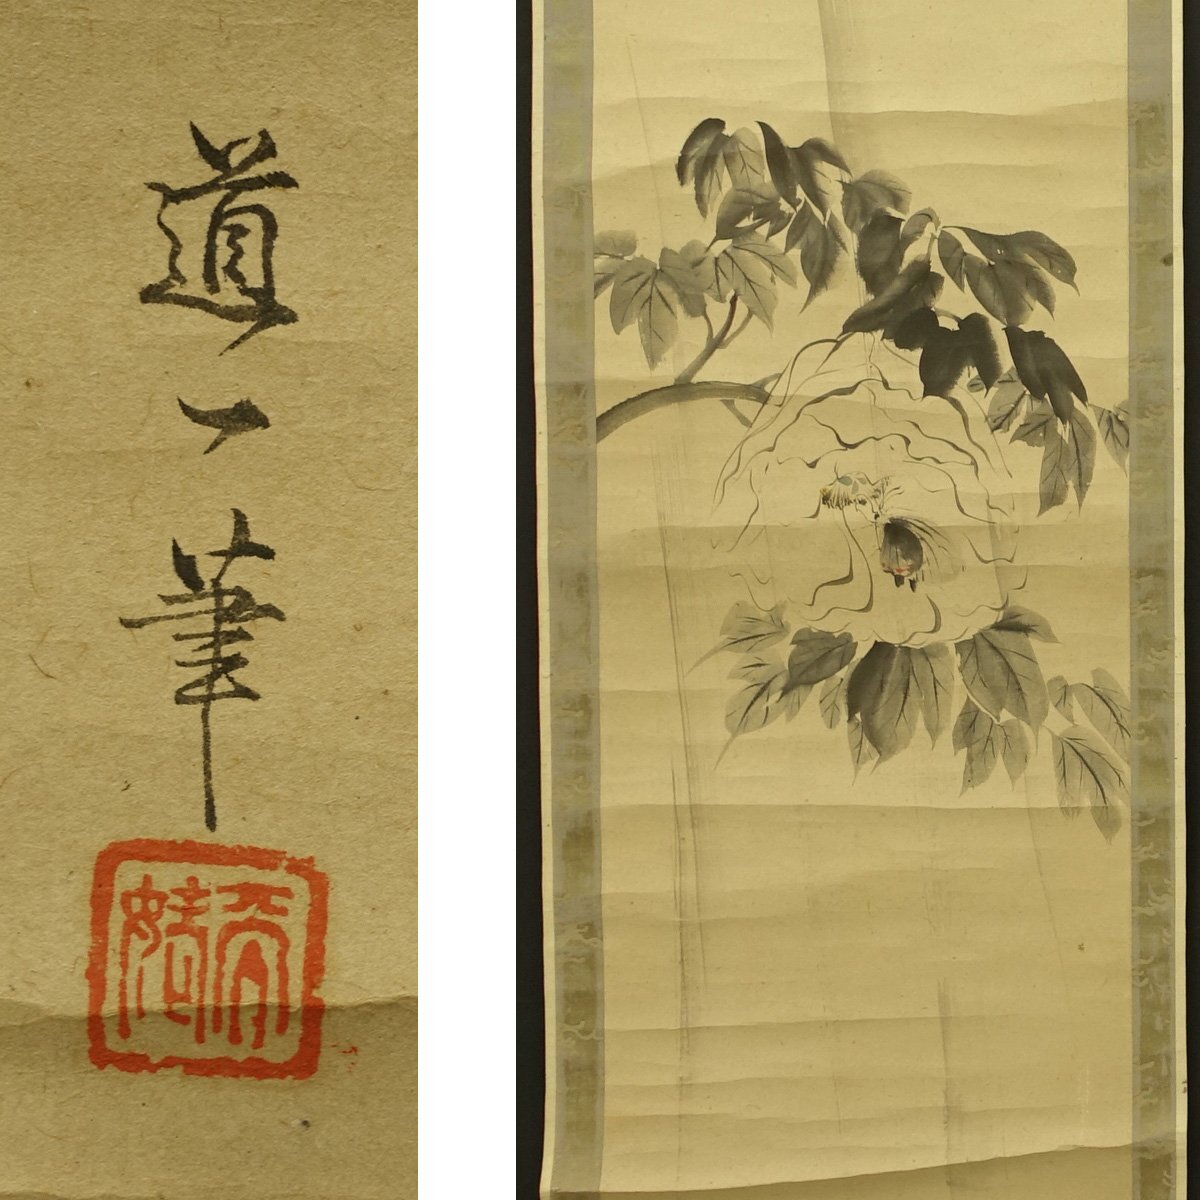 道一筆